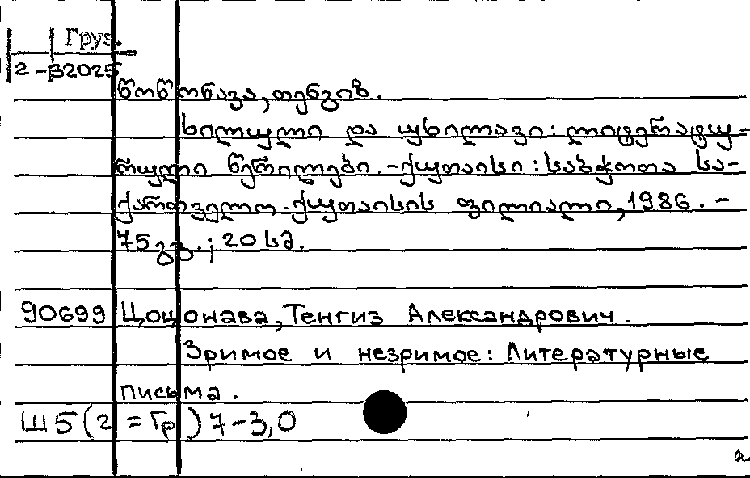 Груз.
2-32025
წოწონავა, თენგიზ.
ხილული და უხილავი: ლიტერატუ-
რული წერილები.-ქუთაისი: საბჭოთა სა-
ქართველო.ქუთაისის ფილიალი, 1986. -
75 გვ.; 20 სმ.
90699 Цоцонава, Тенгиз Александрович.
Зримое и незримое: Литературные
письма.
Ш5(2=Гр)7-3,0